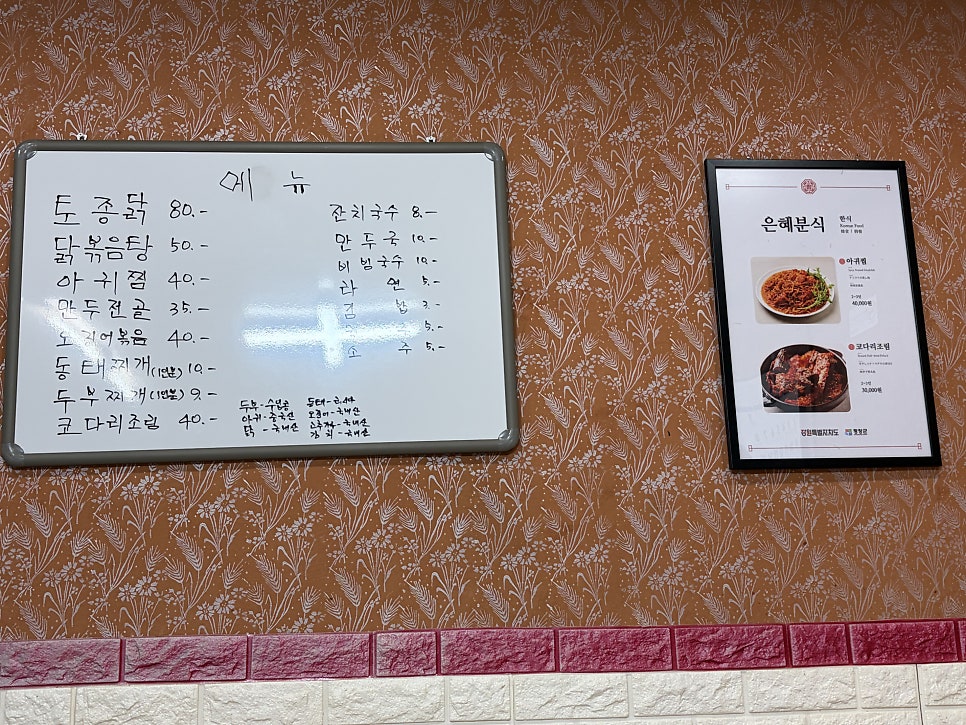 메 뉴
토종닭 80.-
닭볶음탕 50.-
아귀찜 40.-
만두전골 35.-
오징어볶음 40.-
동태찌개(1인분) 10.-
두부찌개(1인분) 9.-
코다리조림 40.-
잔치국수 8.-
만두국 10.-
비빔국수 10.-
라 면 5.-
김 밥 3.-
5.-
소 주 5.-
두부-수입콩
아귀-중국산
닭 -국내산
동태-러시아
오징어-국내산
국내산
김치-국내산
은혜분식
한식
Korean Food
아귀찜
2~3인
40,000원
코다리조림
2~3인
30,000원
강원특별자치도 평창군